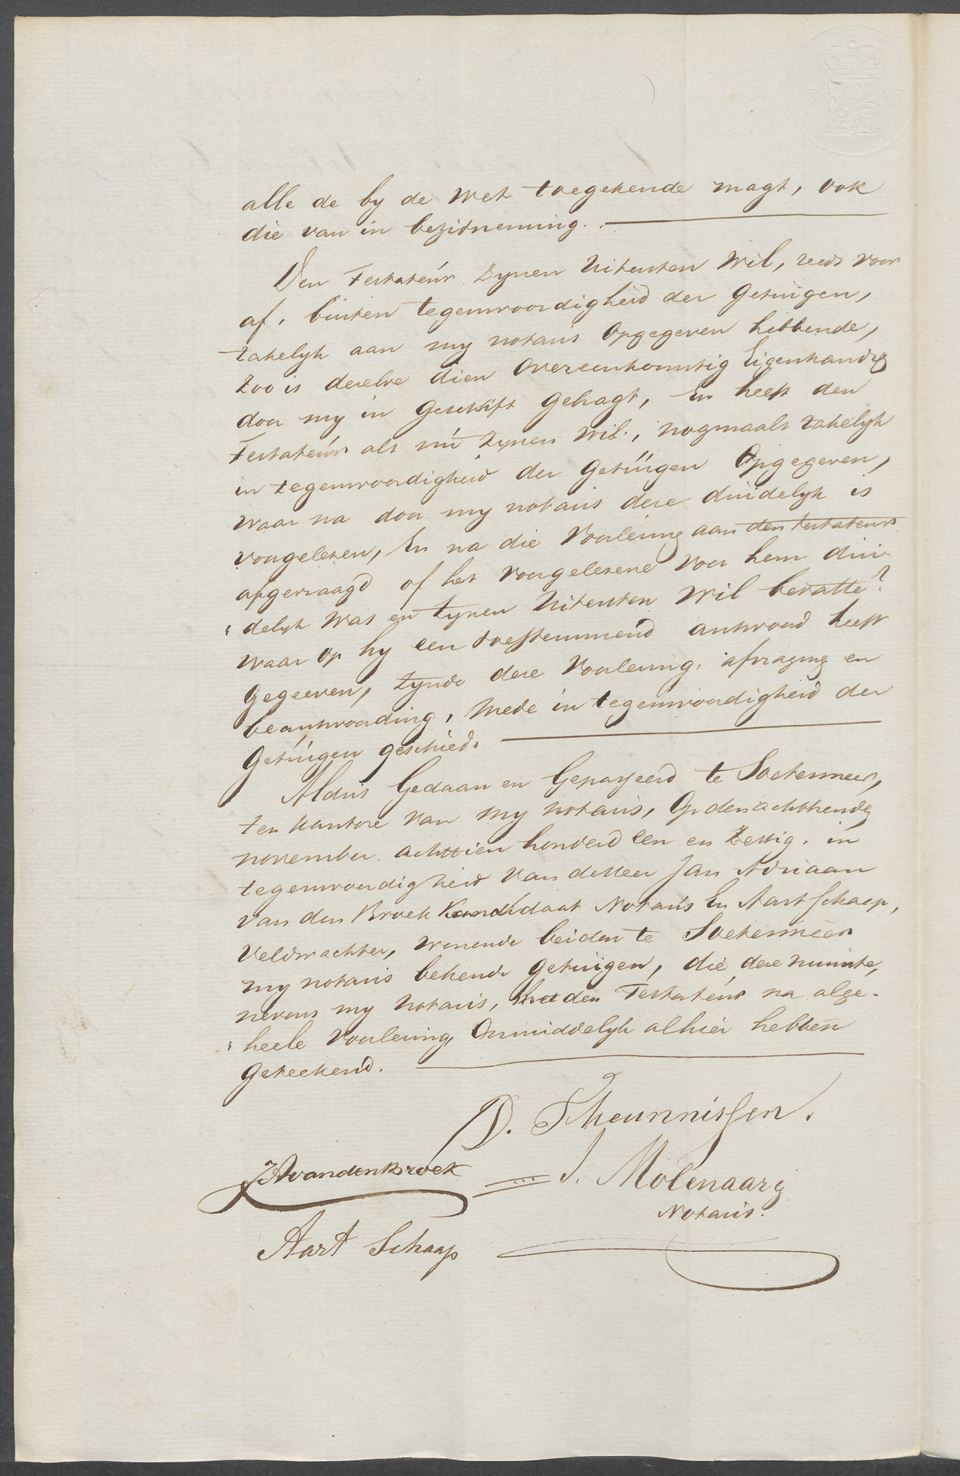 alle de by de wet toegekende magt, ook
die van in bezitneming.
Den Testateúr zynen Uitersten Wil, reeds voor
af, búiten tegenwoordigheid der Getúigen,
zakelyk aan my notaris Opgegeven hebbende,
zoo is dezelve dien Overeenkomstig Eigenhandig
door my in Geschrift Gebragt, en heeft den
Testateúr als nú zynen Wil, nogmaals zakelyk
in tegenwoordigheid der Getúigen Opgegeven,
waar na door my notaris deze duidelyk is
voorgelezen, En na die Voorlezing aan den testateur
afgevraagd of het voorgelezene voor hem dui-
delyk Was en zynen Uitersten Wil bevatte?
waar op hy een toestemmend antwoord heeft
Gegeeven, zynde deze Voorlezing, afvraging en
beantwoording, Mede in tegenwoordigheid der
Getúigen geschied.
Aldus Gedaan en Gepasseerd te Soetermeer,
ten kantore van my notaris, Op den achttienden
november achttien honderd een en Zestig, in
tegenwoordigheid van de Heer Jan Adriaan
van den Broek Kandidaat Notaris En Aart Schaap,
Veldwachter, wonende beiden te Soetermeer
my notaris bekende Getuigen, die deze minute,
nevens my Notaris, met den Testateúr na alge-
heele Voorlezing, Onmiddelyk alhier hebben
Geteekend.
D. Theunnissen.
JAvandenbroek J. Molenaar
Notaris.
Aart Schaap